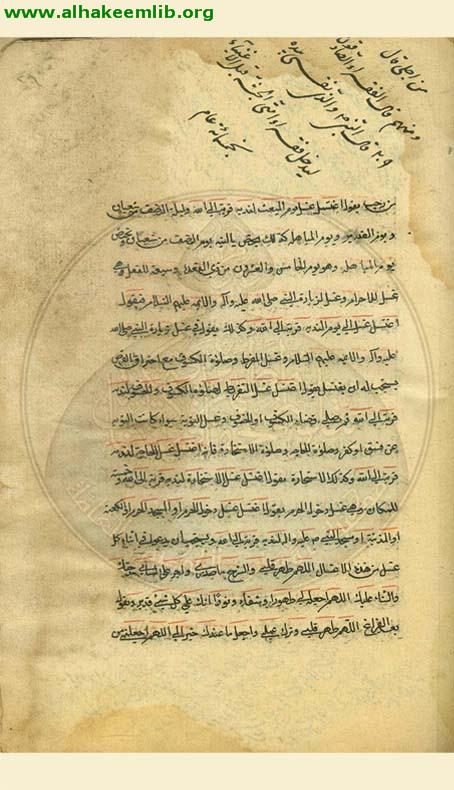 www.alhakeemlib.org
من اجل قال
ومنهم قال الفقراء الصادقون
قال النبي م والذي نفسي بيده
ليدخل فقراء امتي الجنة قبل الاغنياء
بخمسمائة عام
من رجب يقول اغتسل غسل يوم المبعث لندبه قربة الى الله وليلة النصف من شعبان
ويوم الغدير ويوم المباهلة كذلك يختص بالنية يوم النصف من شعبان
يوم المباهلة وهو يوم الخامس والعشرون من ذي القعدة وسبعة للفعل وهي
غسل للاحرام وغسل لزيارة النبي صلى الله عليه وآله والائمة عليهم السلام فيقول
اغتسل غسل الى يوم لندبه قربة الى الله وكذلك يقول في غسل زيارة النبي صلى الله
عليه وآله والائمة عليهم السلام وغسل المفرط وصلوة الكسوف مع احتراق القرص
يستحب له ان يغتسل يقول اغتسل غسل التفريط لصلوة الكسوف
قربة الى الله ثم صلى قضاء الكسوف او الخسوف وغسل التوبة سواء كانت التوبة
عن فسق او كفر وصلوة الحاجة وصلوة الاستخارة فانه اغتسل غسل الحاجة لندبه
قربة الى الله وكذلك الاستخارة يقول اغتسل غسل الاستخارة لندبه قربة الى الله وخمسة
للمكان وهي غسل دخول الحرم يقول اغتسل غسل دخول الحرم او المسجد الحرام او الكعبة
او المدينة او مسجد النبي ص عليه وآله لندبه قربة الى الله ويستحب ان يدعو في اثناء كل
غسل من هذه الاغسال اللهم طهر قلبي واشرح لي صدري واجر على لساني مدحتك
والثناء عليك اللهم اجعله لي طهورا وشفاء ونورا انك على كل شيء قدير ويقول
بعد الفراغ اللهم طهر قلبي وزك عملي واجعل ما عندك خيرا لي اللهم اجعلني من